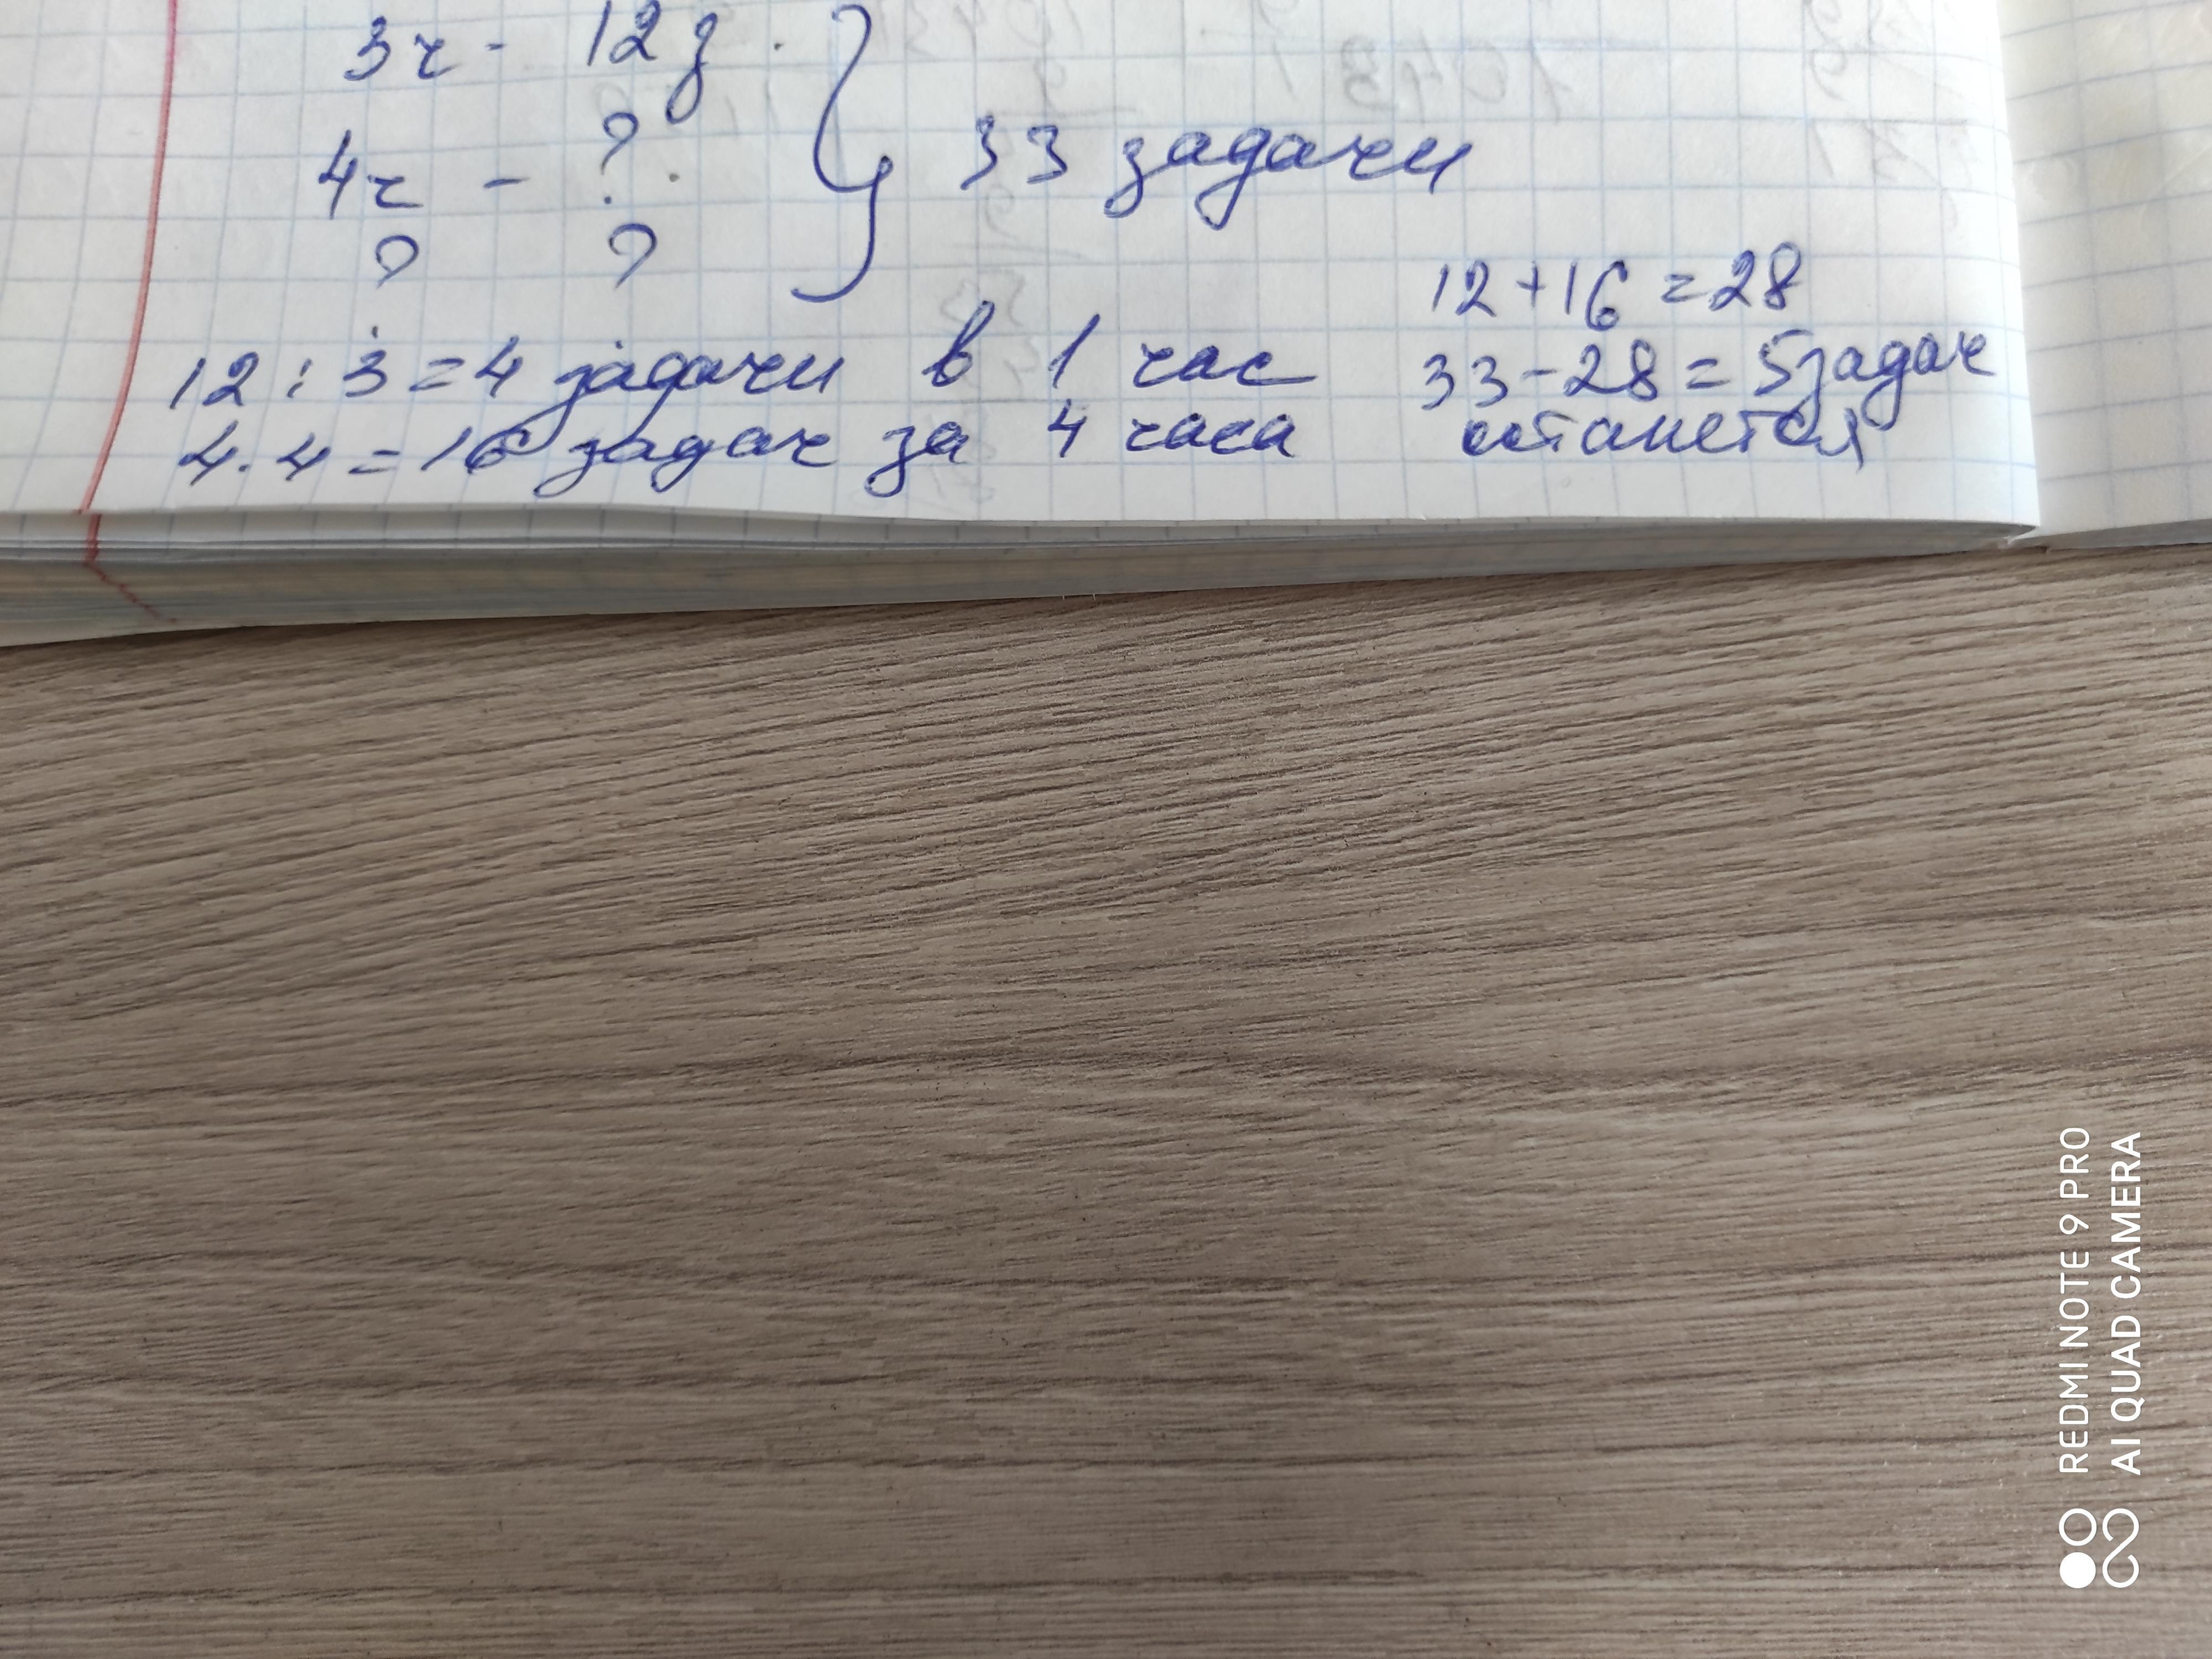 3ч - 12 з.
4ч - ?.
? ?
33 задачи
12 : 3 = 4 задачи в 1 час
4 · 4 = 16 задач за 4 часа
12 + 16 = 28
33 - 28 = 5 задач
останется
REDMI NOTE 9 PRO
AI QUAD CAMERA